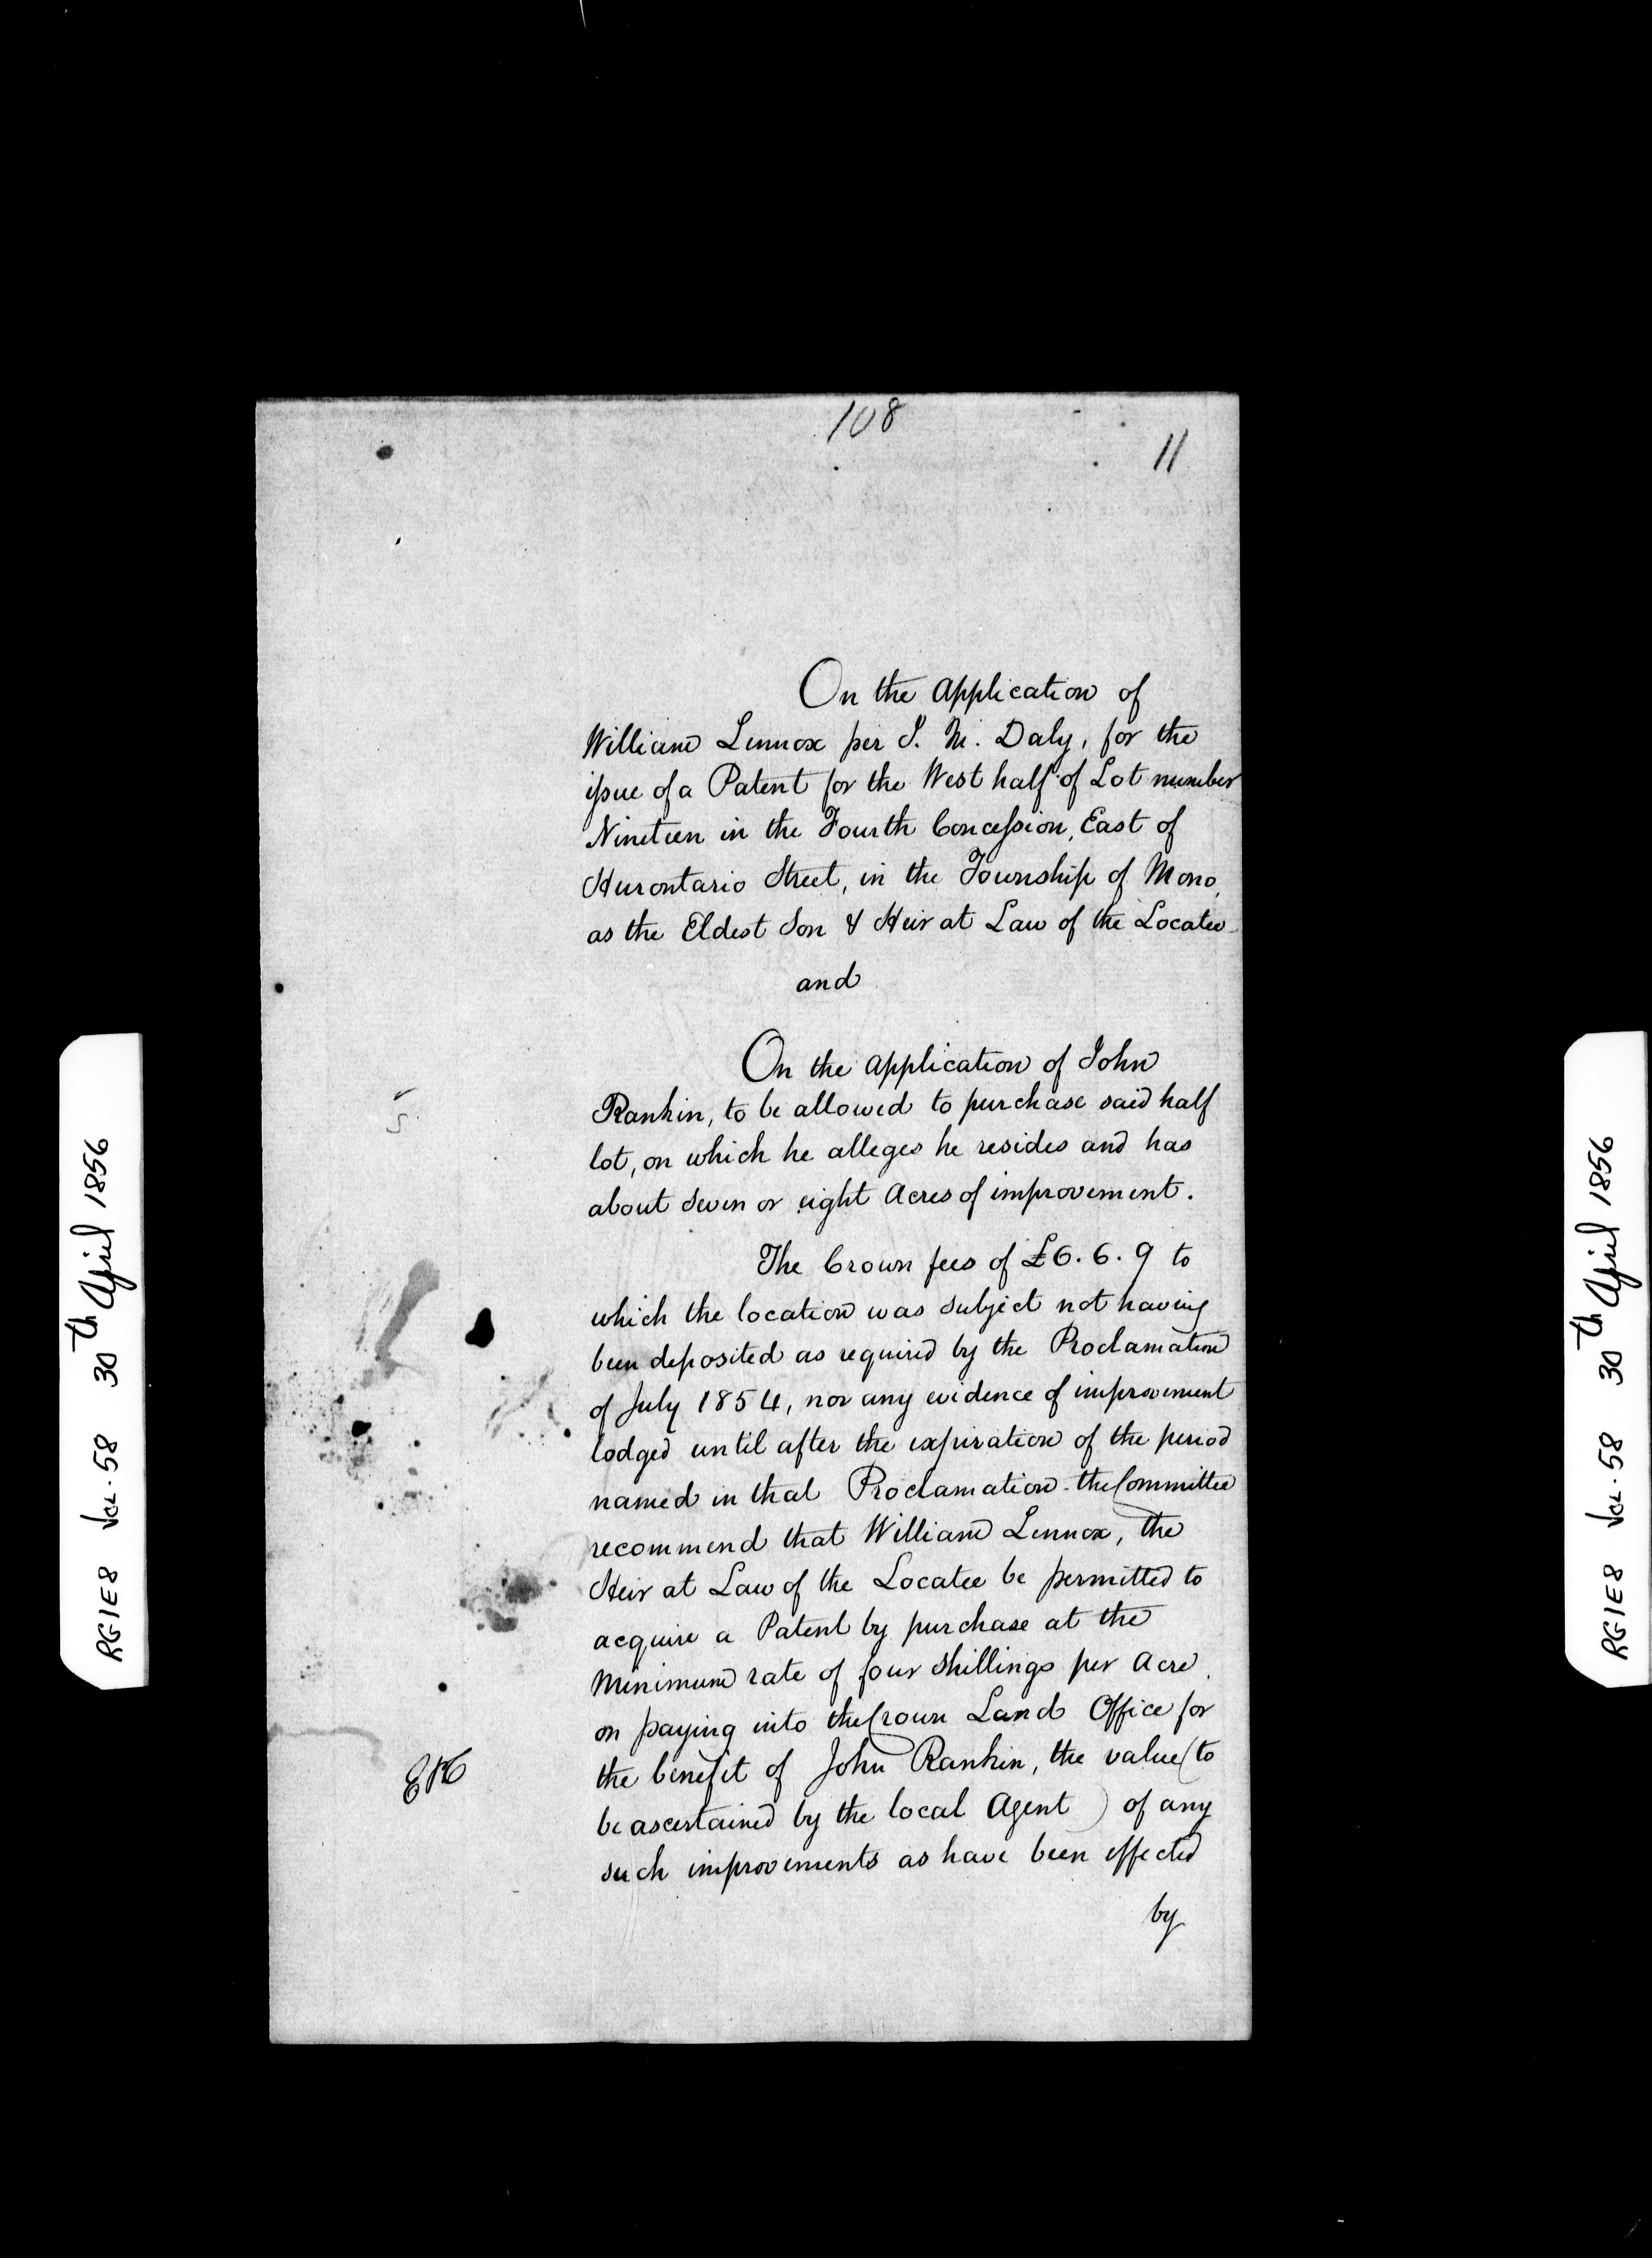 108
11
On the Application of
William Lennox per T. M. Daly, for the
issue of a Patent for the West half of Lot number
Nineteen in the Fourth Concession, East of
Hurontario Street, in the Township of Mono,
as the Eldest Son & Heir at Law of the Locatee -
and
On the Application of John
Rankin, to be allowed to purchase said half
lot, on which he alleges he resides and has
about seven or eight Acres of improvement.
The Crown fees of £6. 6. 9 to
which the location was subject not having
been deposited as required by the Proclamation
of July 1854, nor any evidence of improvement
lodged until after the expiration of the period
named in that Proclamation - the Committee
recommend that William Lennox, the
Heir at Law of the Locatee be permitted to
acquire a Patent by purchase at the
Minimum rate of four shillings per Acre,
on paying into the Crown Land Office for
the benefit of John Rankin, the value (to
be ascertained by the local Agent) of any
such improvements as have been effected
by
RG1E8 Vol. 58 30th April 1856
RG1E8 Vol. 58 30th April 1856